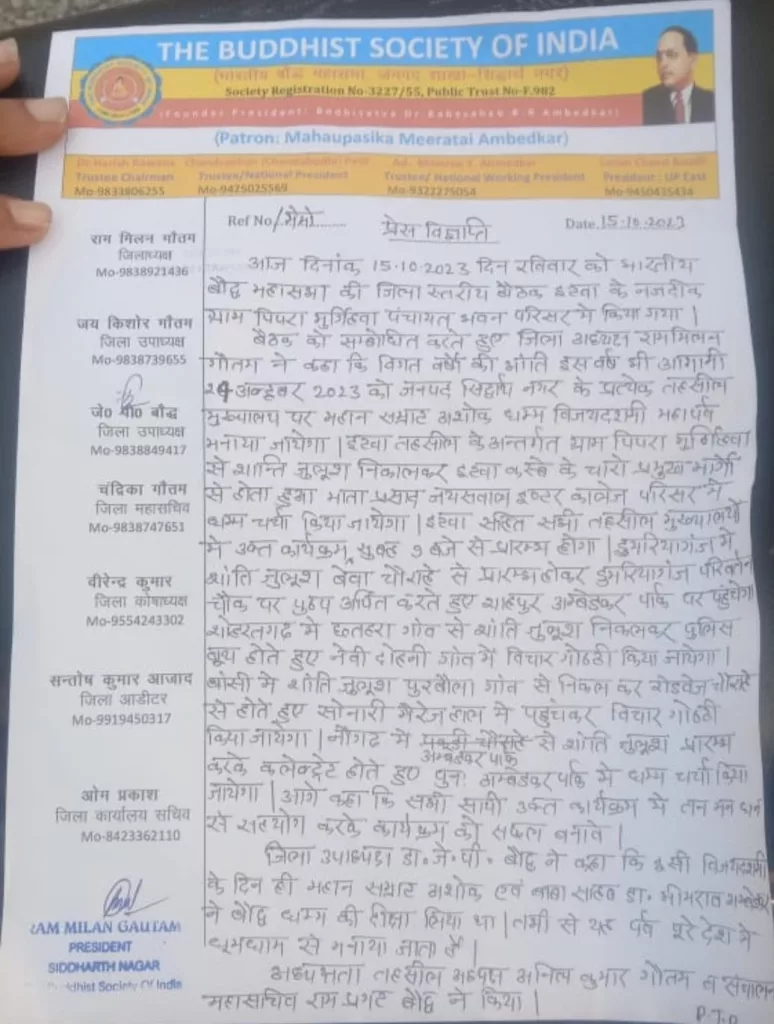 THE BUDDHIST SOCIETY OF INDIA
(भारतीय बौद्ध महासभा जनपद शाखा-सिद्धार्थ नगर)
Society Registration No-3227/55, Public Trust No-F.982
(Founder President: Bodhisatva Dr Babasaheb B R Ambedkar)
(Patron: Mahaupasika Meeratai Ambedkar)
Trustee Chairman
Mo-9833806255
Trustee/National President
Mo-9425025569
Trustee/ National Working President
Mo-9322275054
President : UP East
Mo-9450435434
Ref No/मेमो........
प्रेस विज्ञप्ति
Date.15.10.2023
राम मिलन गौतम
जिलाध्यक्ष
Mo-9838921436
जय किशोर गौतम
जिला उपाध्यक्ष
Mo-9838739655
जे० पी० बौद्ध
जिला उपाध्यक्ष
Mo-9838849417
चंद्रिका गौतम
जिला महासचिव
Mo-9838747651
वीरेन्द्र कुमार
जिला कोषाध्यक्ष
Mo-9554243302
सन्तोष कुमार आजाद
जिला आडीटर
Mo-9919450317
ओम प्रकाश
जिला कार्यालय सचिव
Mo-8423362110
RAM MILAN GAUTAM
PRESIDENT
SIDDHARTH NAGAR
Buddhist Society Of India
आज दिनांक 15.10.2023 दिन रविवार को भारतीय
बौद्ध महासभा की जिला स्तरीय बैठक इटवा के नजदीक
ग्राम पिपरा मुर्गिहवा पंचायत भवन परिसर में किया गया |
बैठक को सम्बोधित करते हुए जिला अध्यक्ष राममिलन
गौतम ने कहा कि विगत वर्षो की भांति इस वर्ष भी आगामी
24 अक्टूबर 2023 को जनपद सिद्धार्थ नगर के प्रत्येक तहसील
मुख्यालय पर महान सम्राट अशोक धम्म विजयदशमी महापर्व
मनाया जायेगा | इटवा तहसील के अन्तर्गत ग्राम पिपरा मुर्गिहवा
से शान्ति जुलूश निकालकर इटवा कस्बे के चारो प्रमुख मार्गो
से होता हुआ माता प्रसाद जयसवाल इण्टर कालेज परिसर में
धम्म चर्चा किया जायेगा | इटवा सहित सभी तहसील मुख्यालयों
में उक्त कार्यक्रम सुबह 9 बजे से प्रारम्भ होगा | डुमरियागंज में
शांति जुलूश बेवा चौराहे से प्रारम्भ होकर डुमरियागंज
चौक पर पुष्प अर्पित करते हुए शाहपुर अम्बेडकर पार्क पर पहुंचेगा
शोहरतगढ़ मे छतहरा गांव से शांति जुलूश निकलकर पुलिस
बूथ होते हुए नेबी दोहनी गांव में विचार गोष्ठी किया जायेगा |
बांसी में शांति जुलूश पुरबौला गांव से निकल कर रोडवेज चौराहे
से होते हुए सोनारी मैरेज हाल मे पहुंचकर विचार गोष्ठी
किया जायेगा | नौगढ मे अम्बेडकर पार्क से शांति जुलूश प्रारम्भ
करके कलेक्ट्रेट होते हुए पुनः अम्बेडकर पार्क में धम्म चर्चा किया
जायेगा | आगे कहा कि सभी साथी उक्त कार्यक्रम मे तन मन धन
से सहयोग करके कार्यक्रम को सफल बनावे |
जिला उपाध्यक्ष डा. जे. पी. बौद्ध ने कहा कि इसी विजयदशमी
के दिन ही महान सम्राट अशोक एवं बाबा साहब डा. भीमराव अम्बेडकर
ने बौद्ध धम्म की दीक्षा लिया था | तभी से यह पर्व पूरे देश में
धूमधाम से मनाया जाता है |
अध्यक्षता तहसील अध्यक्ष अनिल कुमार गौतम व संचालन
महासचिव राम प्रगट बौद्ध ने किया |
P.T.O